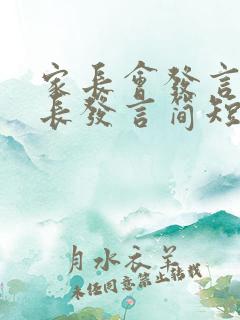 家長會發言
長發言简短
月水衣羊
未经同意禁止转载